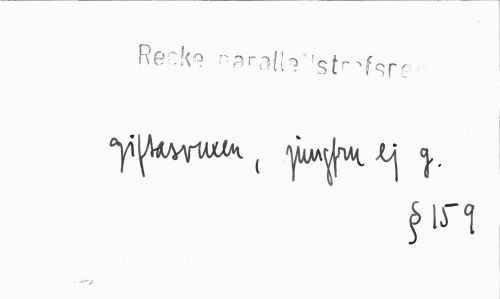 Recke parallellstrofsreg
giftasvuxen, jungfru ej g.
§ 159